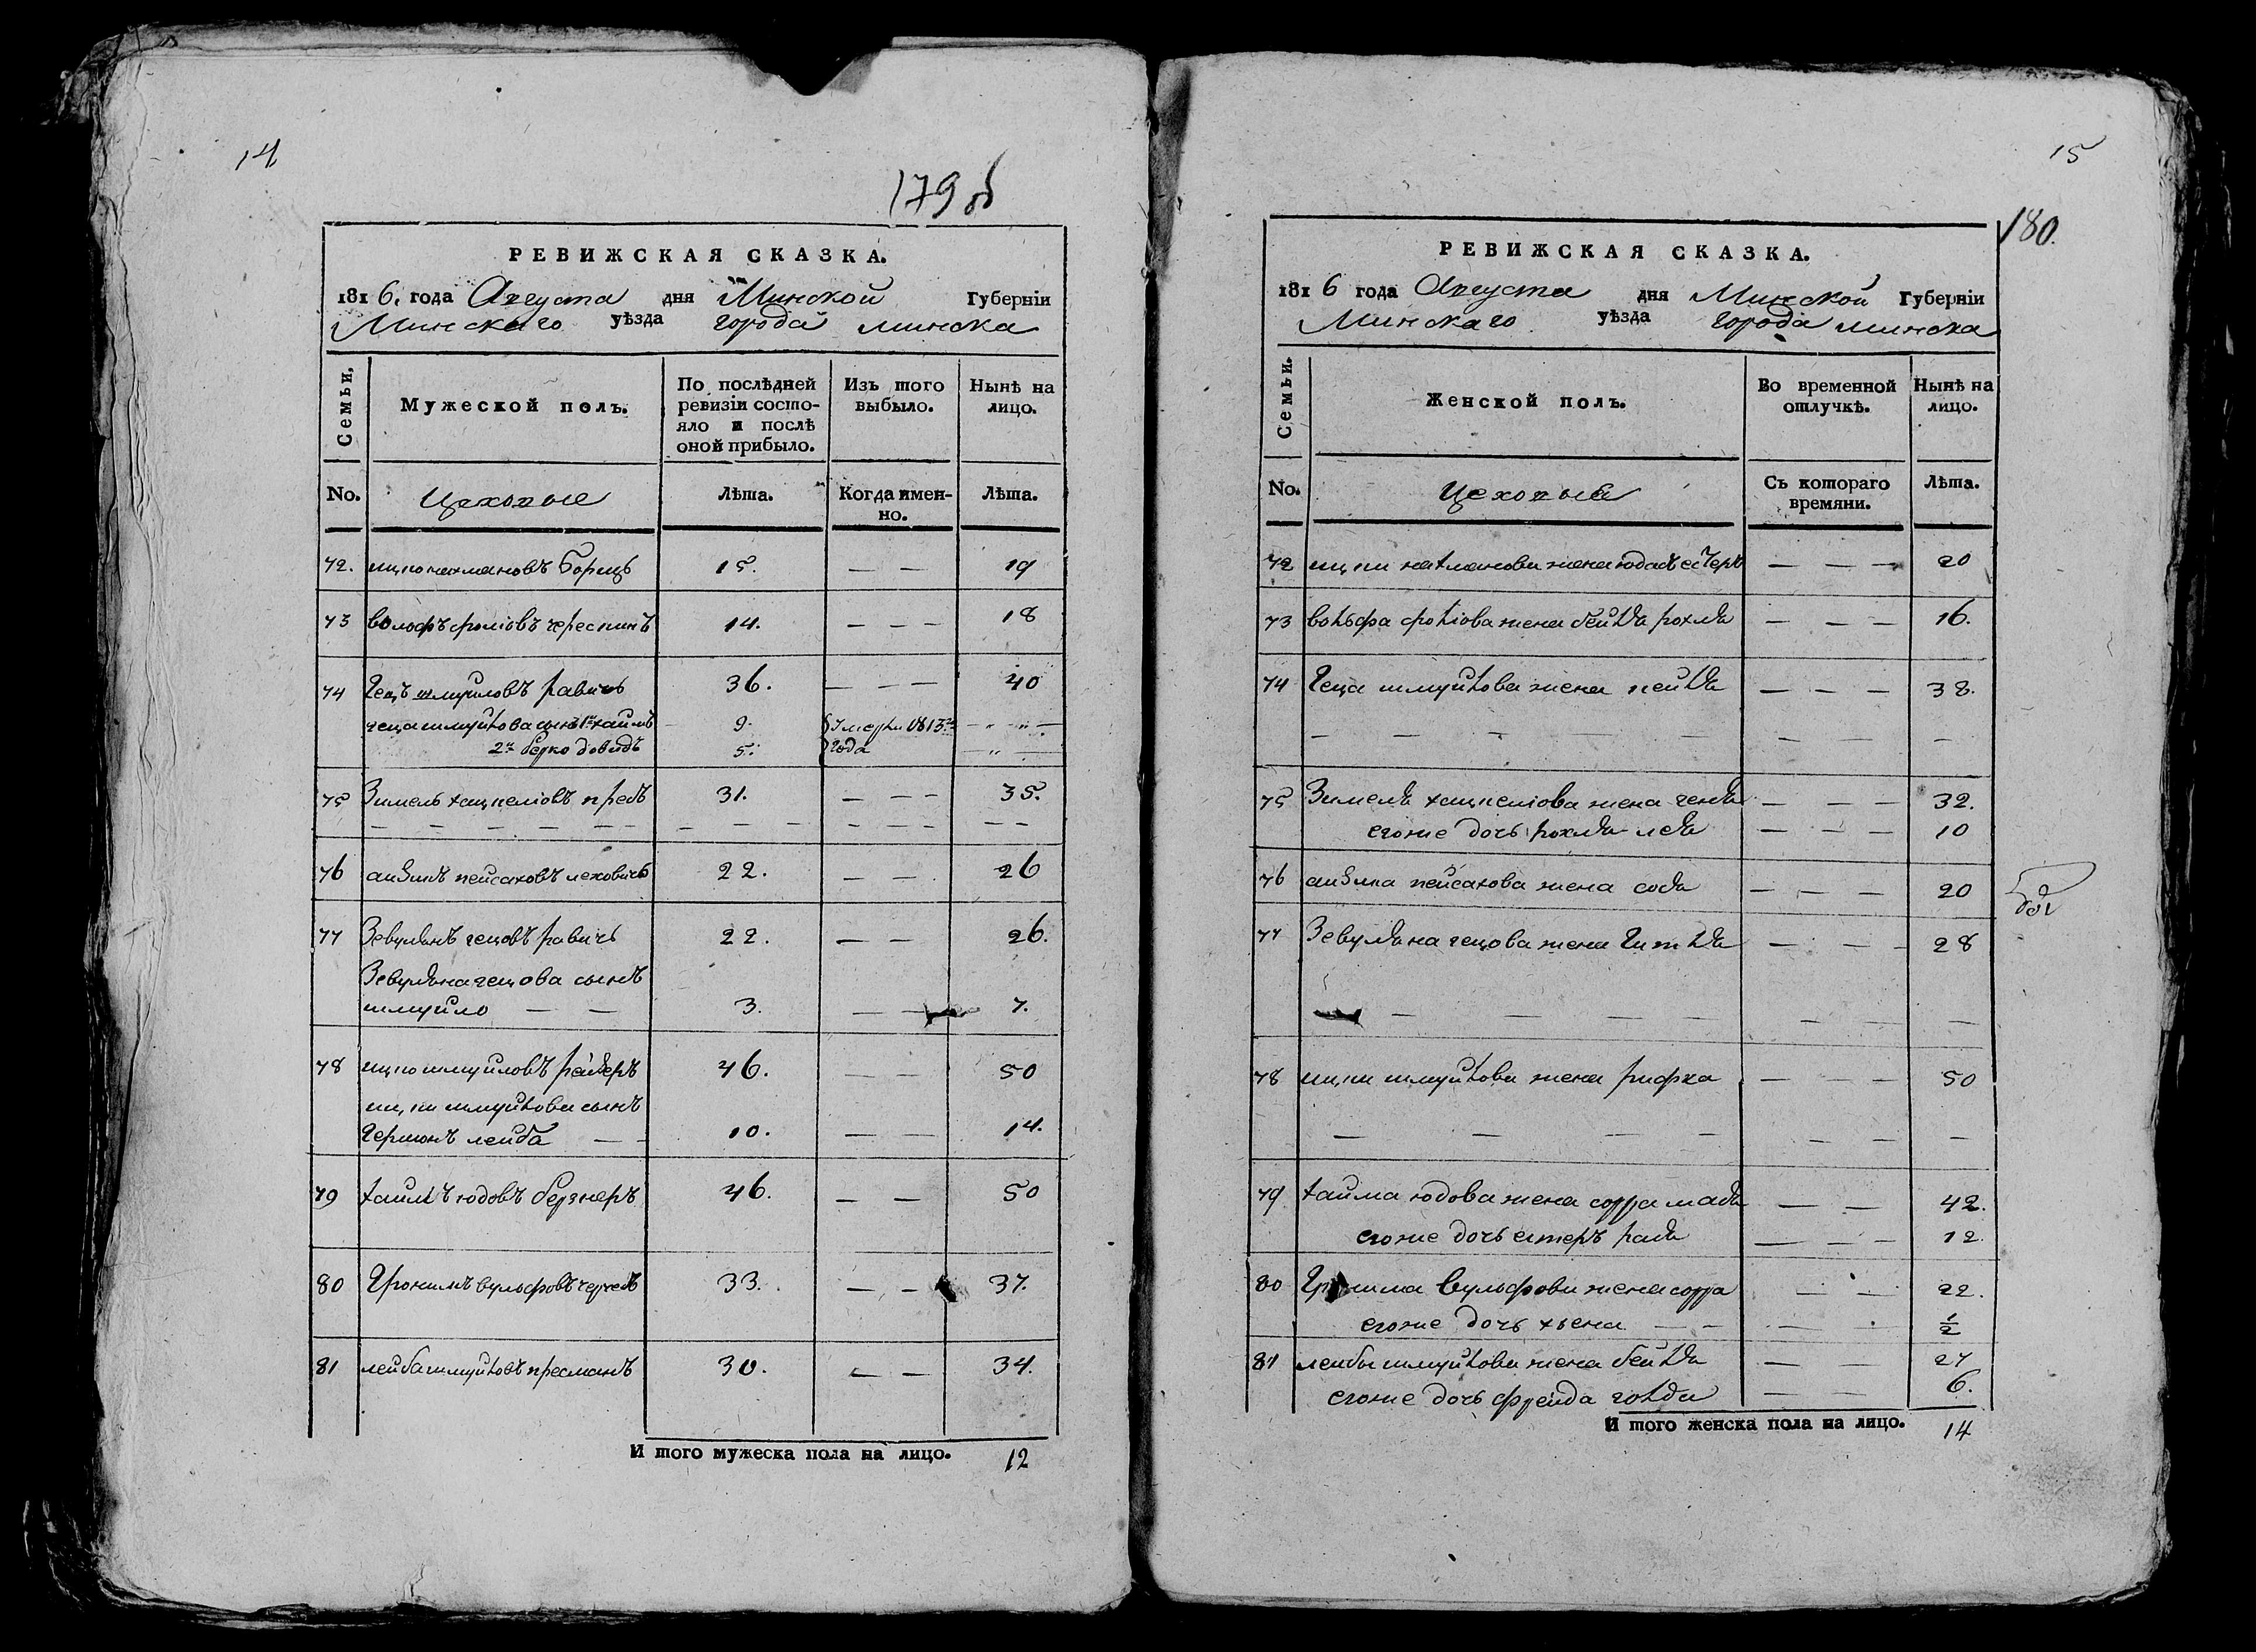 14
179 об
РЕВИЖСКАЯ СКАЗКА.
1816. года Августа дня Минской Губерніи
Минскаго уѣзда города минска
Семьи,
Мужеской полъ.
По послѣдней ревизіи состояло и послѣ оной прибыло.
Изъ того выбыло.
Нынѣ на лицо.
No. Цеховые Лѣта. Когда именно. Лѣта.
72. ицко нахмановъ 15. — — 19
73 волфъ фроліовъ 14. — — — 18
74 Гецъ шмуйловъ равичъ 36. — — — 40
геца шмуйлова сынъ 1й хаимъ 9. Умерли 1813го — „ „ —
2й берко довидъ 5. года — „ —
75 Зимель хацкеліовъ 31. — — — 35.
— — — — — — — — — — — — — —
76 анзиль пейсаховъ леховичъ 22. — — 26
77 Зевулянъ гецовъ равичъ 22. — — 26.
Зевуляна гецова сынъ
шмуйло — — 3. — — 7.
78 ицко шмуйловъ 46. — — 50
ицки шмуйлова сынъ
Гершонъ лейба — — 10. — — 14.
79 хаимъ юдовъ 46. — — 50
80 Гронимъ вульфовъ 33. — — 37.
81 лейба шмуйловъ пресманъ 30. — — 34.
И того мужеска пола на лицо. 12
15
180.
РЕВИЖСКАЯ СКАЗКА.
1816 года Августа дня Минской Губерніи
Минскаго уѣзда города минска
Семьи.
Женской полъ.
Во временной отлучкѣ.
Нынѣ на лицо.
No. Цеховые Съ котораго времяни. Лѣта.
72 ицки нахманова жена — — — 20
73 вольфа фроліова жена бейля рохля — — — 16.
74 Геца шмуйлова жена пейля — — — 38.
— — — — — — — —
75 Зимеля хацкеліова жена геня — — — 32.
егоже дочь рохля лея — — — 10
76 анзиля пейсахова жена — — — 20
77 Зевуляна гецова жена Гитля — — — 28
— — — — — — —
78 ицки шмуйлова жена рифка — — — 50
— — — — — — —
79 хаима юдова жена сорра — — 42.
егоже дочь естеръ — — — 12.
80 Гронима вульфова жена сорра — — 22.
егоже дочь хьена — — — — 1/2
81 лейбы шмуйлова жена бейля — — 27
егоже дочь фрейда голда — — 6.
И того женска пола на лицо. 14